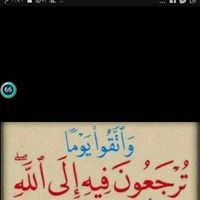 66
وَٱتَّقُوا۟ يَوْمًا
تُرْجَعُونَ فِيهِ إِلَى ٱللَّهِ ۖ